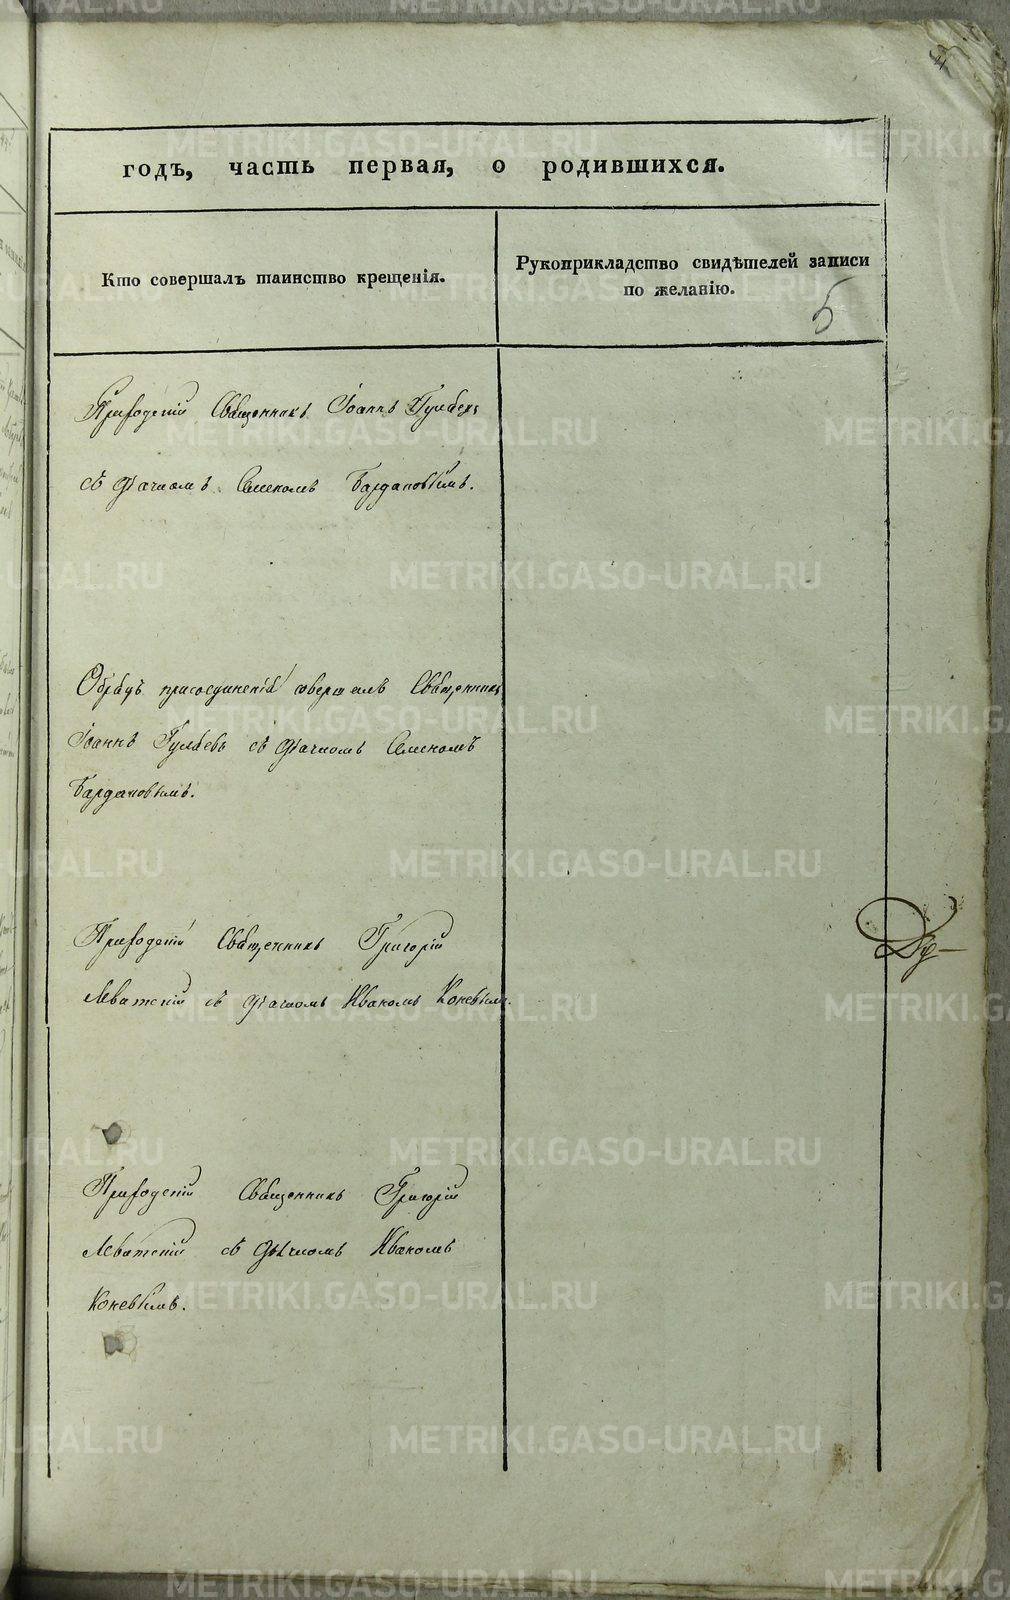 годъ, часть первая, о родившихся.
Кто совершалъ таинство крещенія.
Рукоприкладство свидѣтелей записи
по желанію.
5
Приходскій Священникъ Іоаннъ Гуляевъ
съ дьячкомъ Семеномъ Бардановымъ.
Обрядъ присоединенія совершалъ Священникъ
Іоаннъ Гуляевъ съ дьячкомъ Семеномъ
Бардановымъ.
Приходскій Священникъ Григорій
Левитскій съ дьячкомъ Иваномъ Коневымъ.
Ду-
Приходскій Священникъ Григорій
Левитскій съ дьячкомъ Иваномъ
Коневымъ.
METRIKI.GASO-URAL.RU